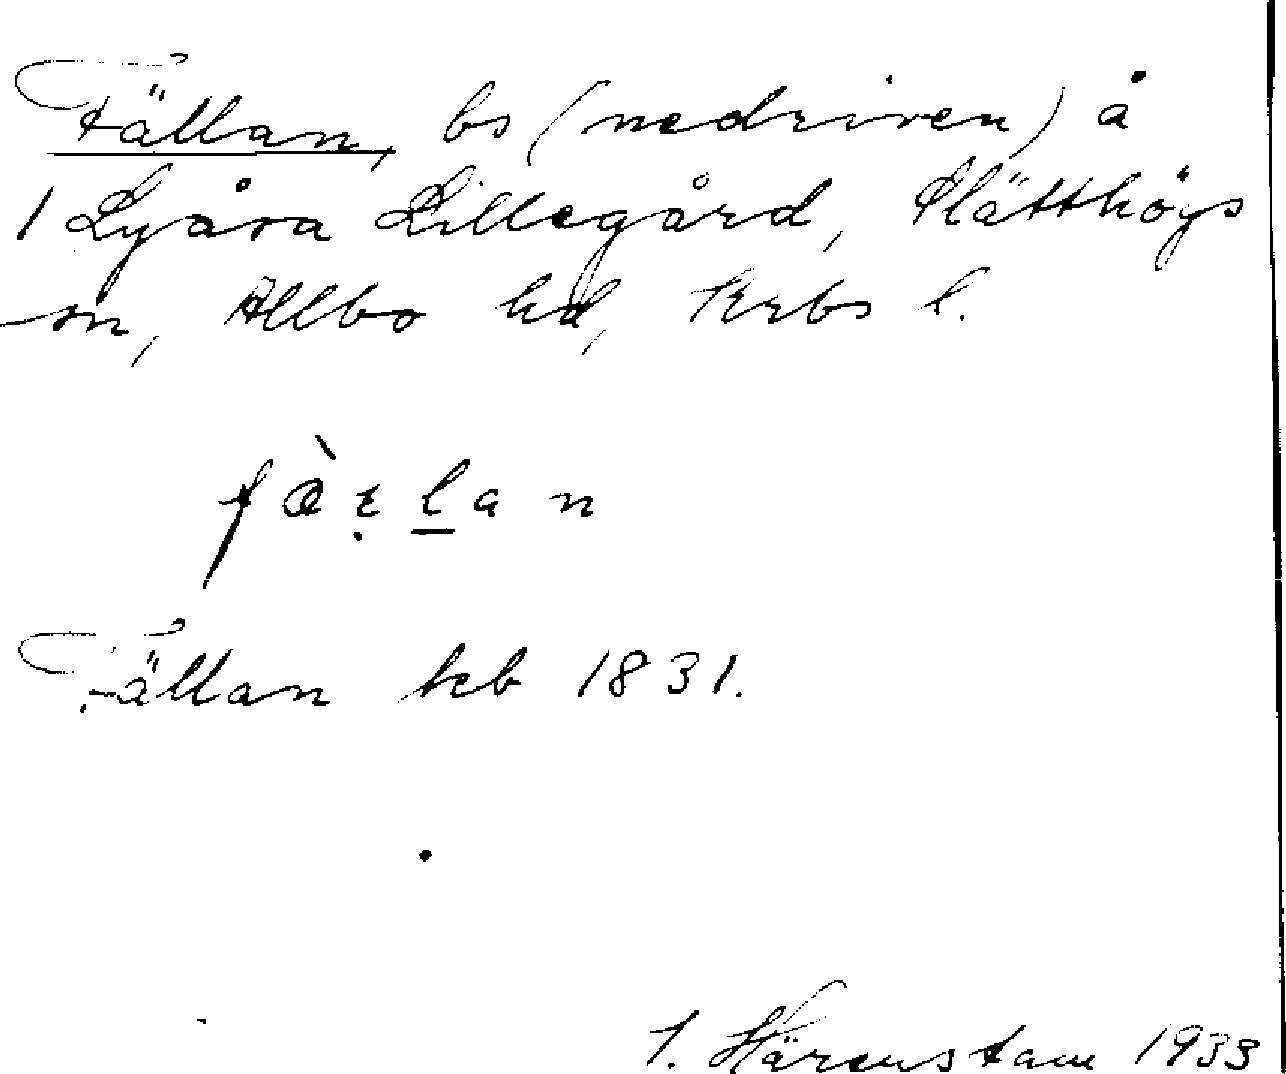 Fällan, bs (nedriven) å
1 Lyåsa Lillegård, Slätthögs
sn, Allbo hd, Krbs l.
fæ̀ꞇ̣l̲an
Fällan kb 1831.
J. Härenstam 1933